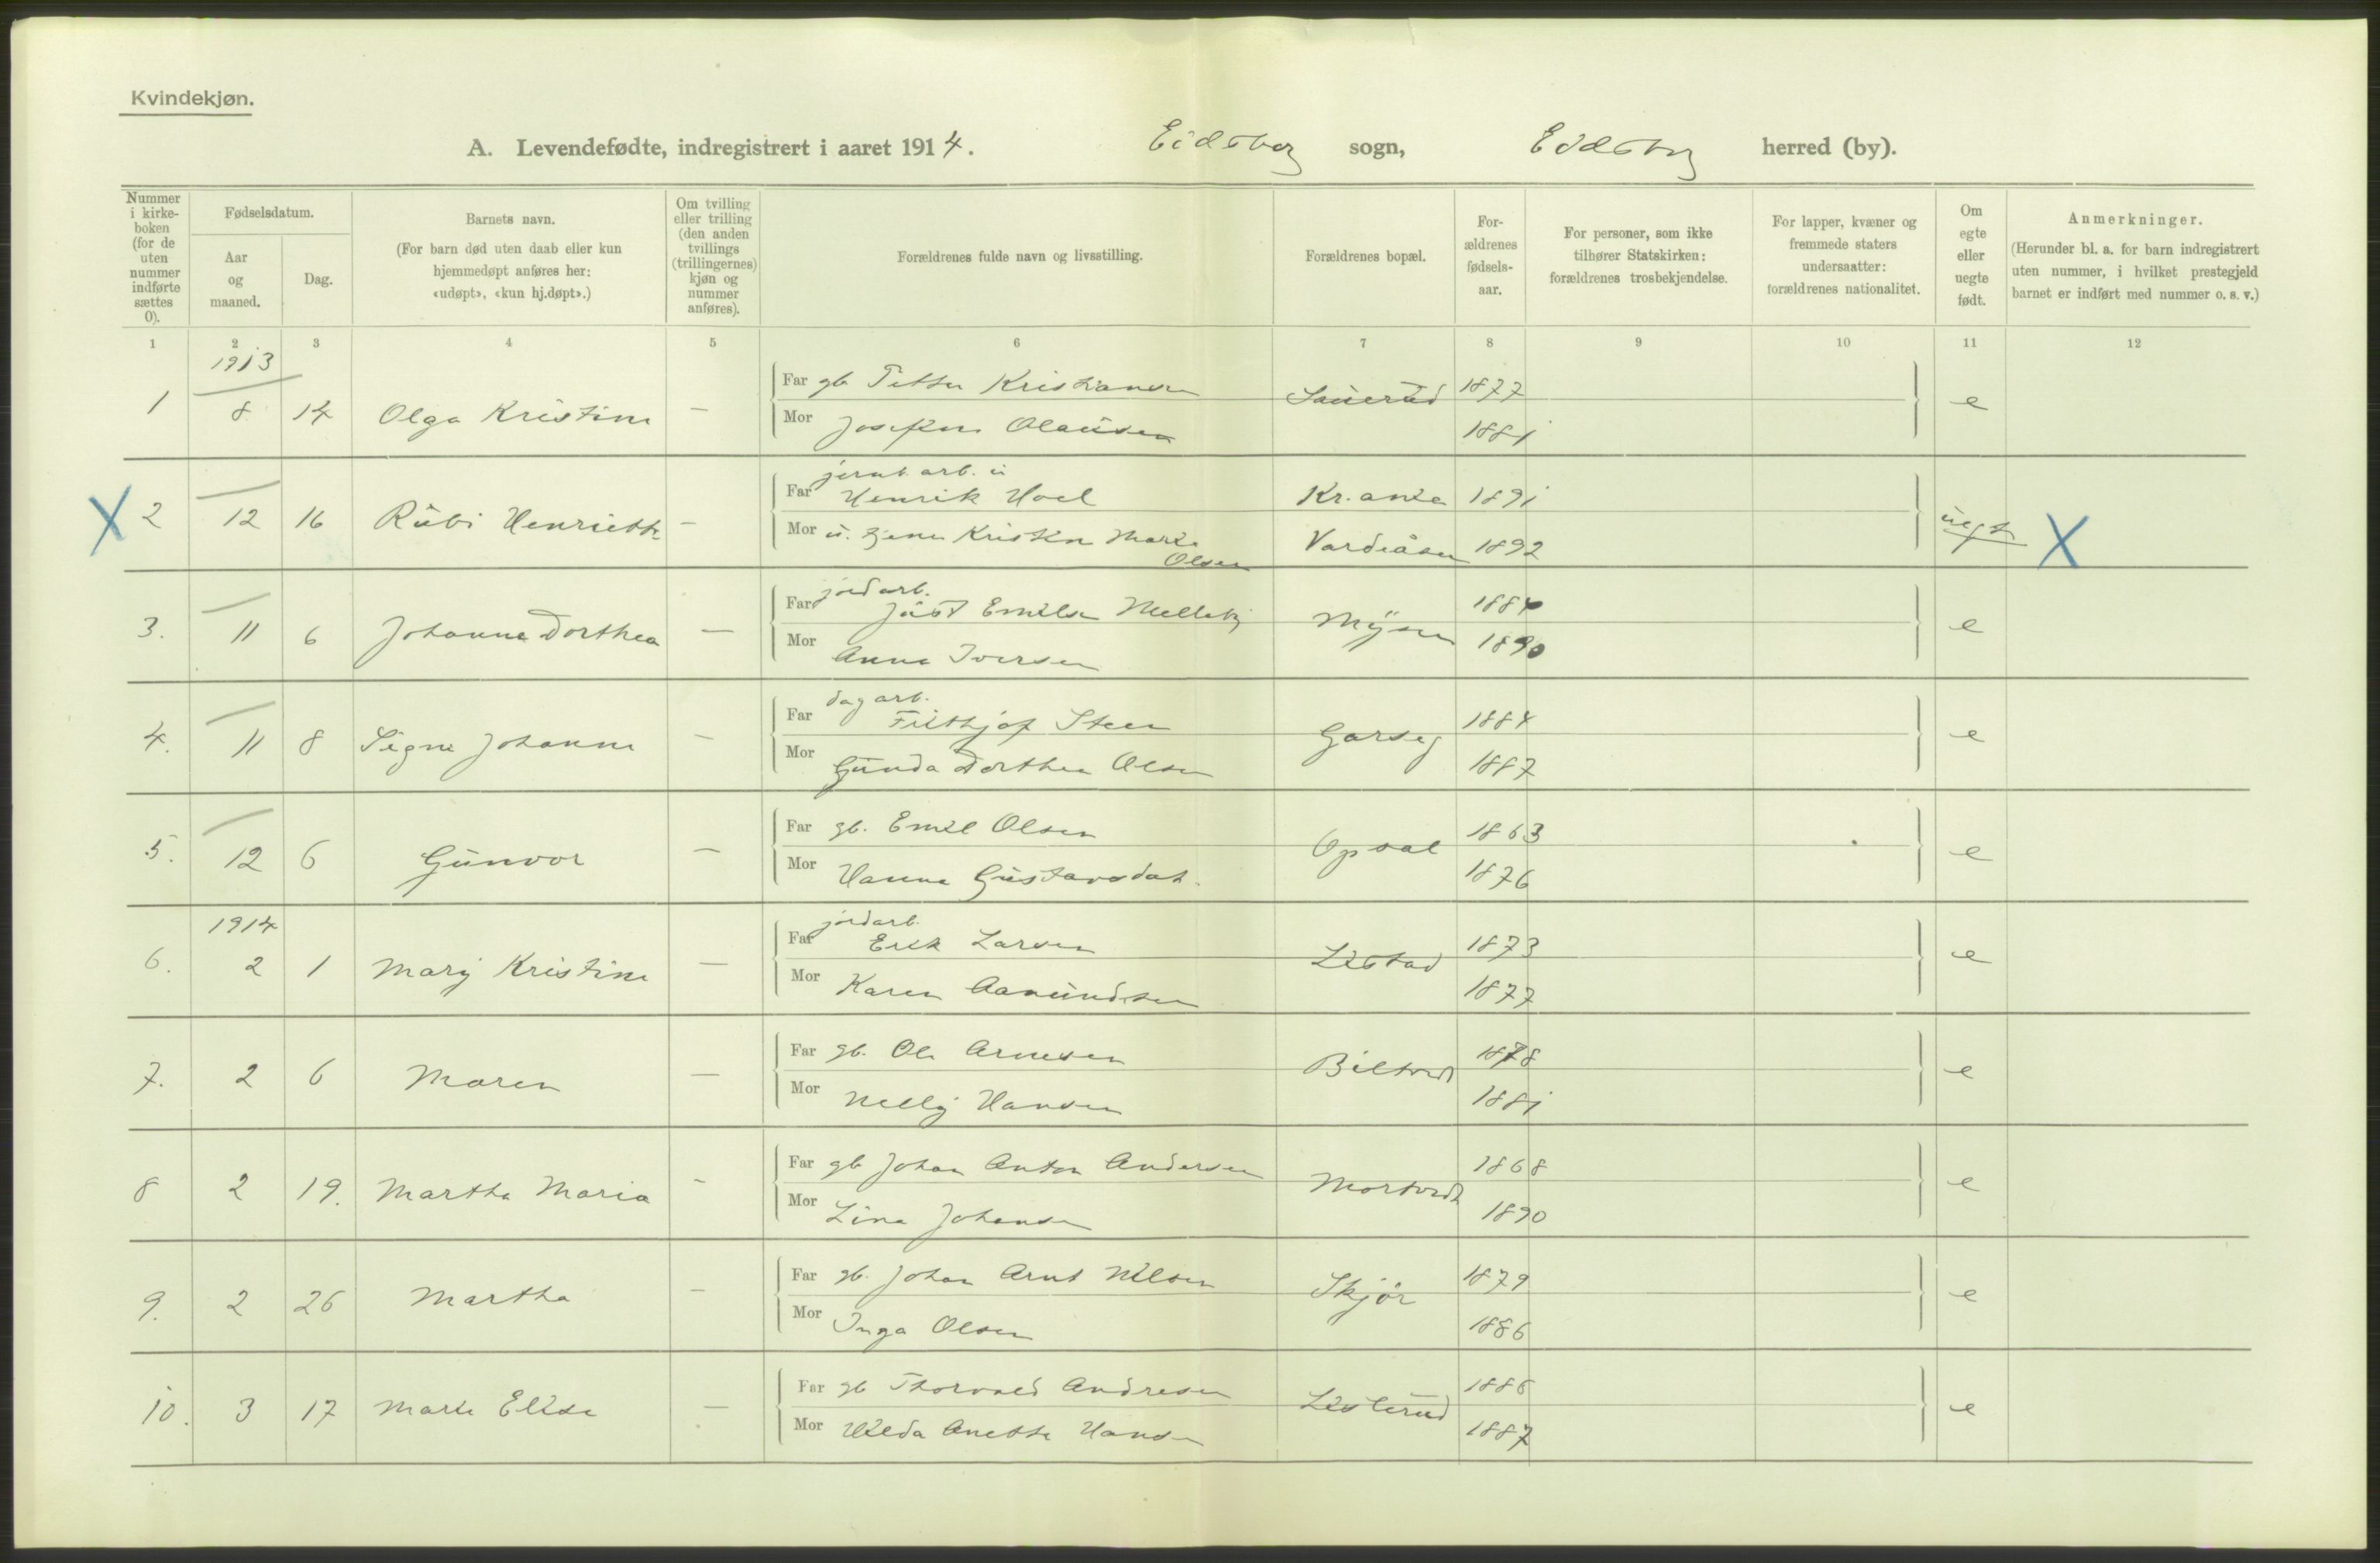 Kvindekjøn.
A. Levendefødte, indregistrert i aaret 1914. Eidsberg sogn, Eidsberg herred (by).
Nummer i kirke-boken (for de uten nummer indførte sættes 0).
Fødselsdatum.
Aar og maaned.
Dag.
Barnets navn.
(For barn død uten daab eller kun hjemmedøpt anføres her: «udøpt», «kun hj.døpt».)
Om tvilling eller trilling (den anden tvillings (trillingernes) kjøn og nummer anføres).
Forældrenes fulde navn og livsstilling.
Forældrenes bopæl.
For-ældrenes fødsels-aar.
For personer, som ikke tilhører Statskirken: forældrenes trosbekjendelse.
For lapper, kvæner og fremmede staters undersaatter: forældrenes nationalitet.
Om egte eller uegte født.
Anmerkninger.
(Herunder bl. a. for barn indregistrert uten nummer, i hvilket prestegjeld barnet er indført med nummer o. s. v.)
1 2 3 4 5 6 7 8 9 10 11 12
1913
1 8 14 Olga Kristine — Far gb Petter Kristiansen 1877 e
Mor Josefine Olausen 1881
jernb. arb. u
X 2 12 16 Rubi Henriette — Far Henrik Hoel Kr.ania 1891 uegt X
Mor u. tjene Kristine Marie Olsen Vardeåsen 1892
jordarb.
3. 11 6 Johanne Dorthea — Far Just Emilsen Melleby Mysen 1884 e
Mor Anna Iversen 1890
dagarb.
4. 11 8 Signe Johanne — Far Frithjof Steen Garseg 1884 e
Mor Gunda Dorthea Olsen 1887
5. 12 6 Gunvor — Far gb. Emil Olsen Opsal 1863 e
Mor Hanna Gustavsdat. 1876
1914
jordarb.
6. 2 1 Mary Kristine — Far Erik Larsen Listad 1873 e
Mor Karen Aamundsen 1877
7. 2 6 Maren — Far gb. Ole Arnesen 1878 e
Mor Nelly Hansen 1881
8 2 19. Martha Maria - Far gb Johan Anton Andersen 1868 e
Mor Lina Johansen 1890
9. 2 26 Martha - Far gb. Johan Arnt Nilsen Skjør 1879 e
Mor Inga Olsen 1886
10. 3 17 Marie Elise — Far gb Thorvald Andresen Listerud 1886 e
Mor Hilda Anette Hansen 1887